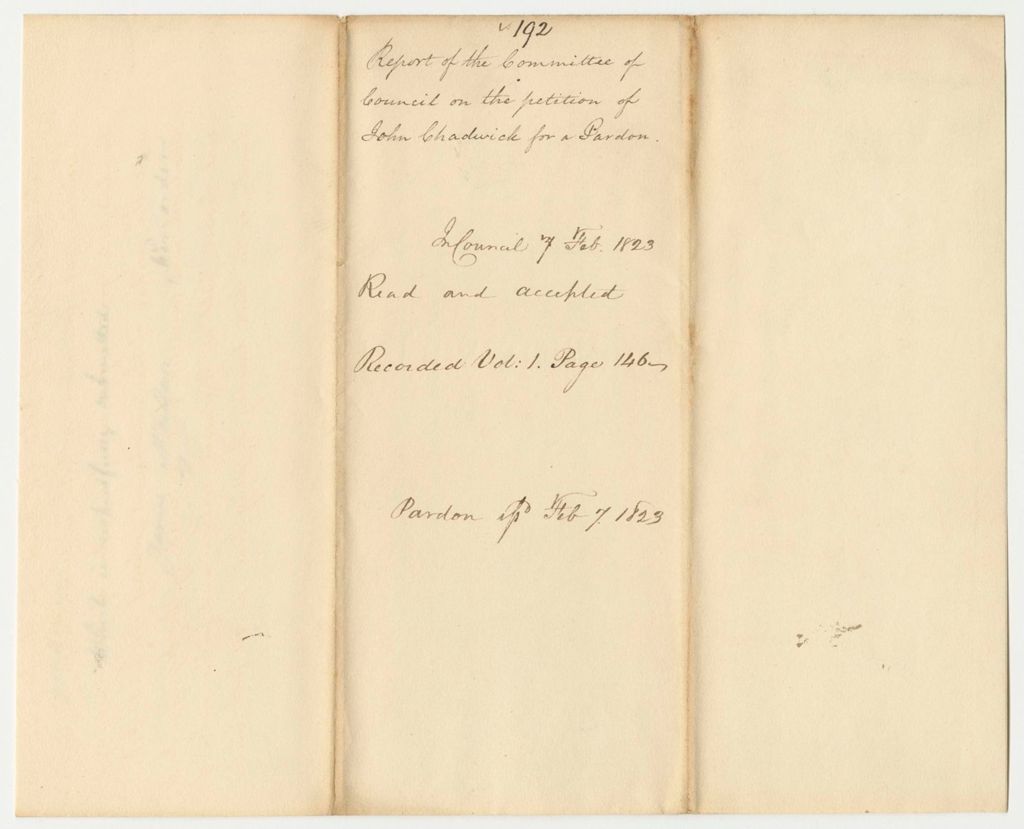 192
Report of the Committee of
Council on the petition of
John Chadwick for a Pardon.
In Council 7 Feb. 1823
Read and accepted
Recorded Vol: 1. Page 146
Pardon issd Feb 7. 1823